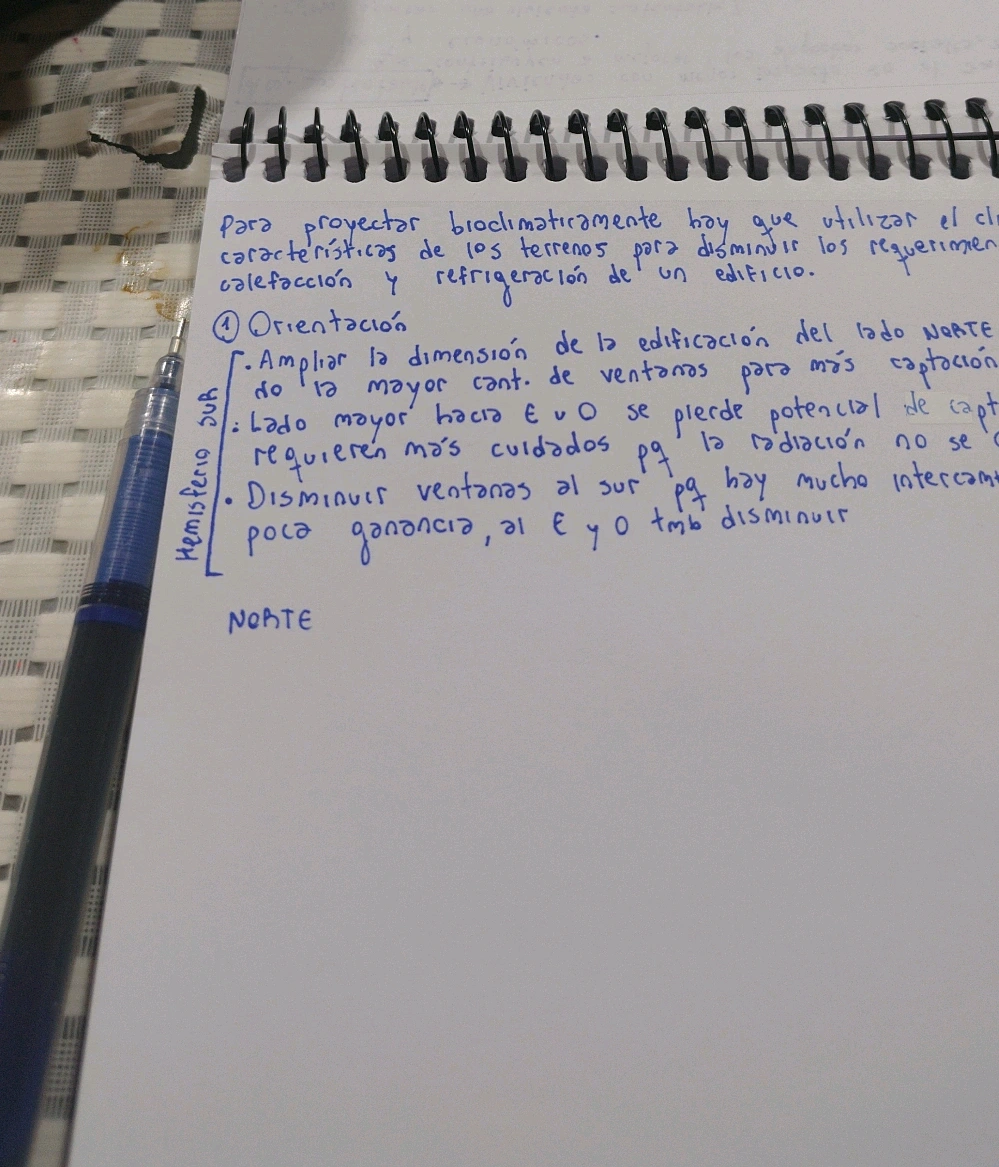 Para proyectar bioclimaticamente hay que utilizar el cli
características de los terrenos para disminuir los requerimien
calefacción y refrigeración de un edificio.
① Orientación
Hemisferio SUR
• Ampliar la dimensión de la edificación del lado NORTE
do la mayor cant. de ventanas para más captación
• Lado mayor hacia E u O se pierde potencial de capt
requieren más cuidados pq la radiación no se
• Disminuir ventanas al sur pq hay mucho intercam
poca ganancia, al E y O tmb disminuir
NORTE